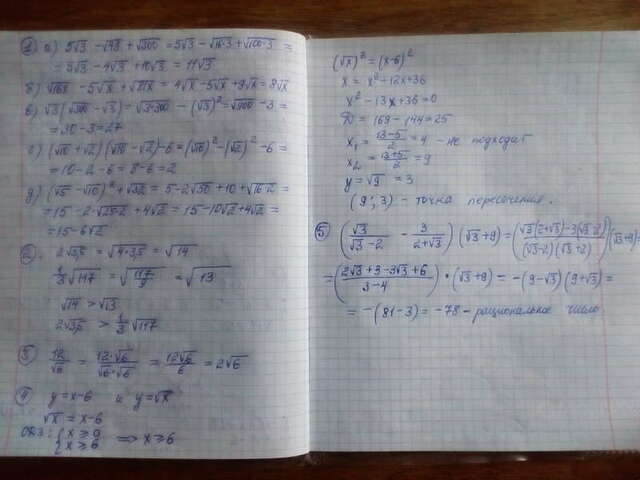 ① а) 5√3 - √48 + √300 = 5√3 - √16·3 + √100·3 =
= 5√3 - 4√3 + 10√3 = 11√3
б) √16x - 5√x + √81x = 4√x - 5√x + 9√x = 8√x
в) √3(√300 - √3) = √3·300 - (√3)² = √900 - 3 =
= 30 - 3 = 27
г) (√10 + √2)(√10 - √2) - 6 = (√10)² - (√2)² - 6 =
= 10 - 2 - 6 = 8 - 6 = 2
д) (√5 - √10)² + √32 = 5 - 2√50 + 10 + √16·2 =
= 15 - 2·√25·2 + 4√2 = 15 - 10√2 + 4√2 =
= 15 - 6√2
② 2√3,5 = √4·3,5 = √14
1/3√117 = √117/9 = √13
√14 > √13
2√3,5 > 1/3√117
③ 12/√6 = 12·√6/√6·√6 = 12√6/6 = 2√6
④ y = x-6 и y = √x
√x = x-6
ОДЗ: {x ≥ 0 x ≥ 6 => x ≥ 6
(√x)² = (x-6)²
x = x² - 12x + 36
x² - 13x + 36 = 0
D = 169 - 144 = 25
x₁ = 13-5/2 = 4 - не подходит
x₂ = 13+5/2 = 9
y = √9 = 3
(9; 3) - точка пересечения.
⑤ (√3/√3-2 - 3/2+√3)(√3+9) = (√3(2+√3)-3(√3-2)/(√3-2)(√3+2))(√3+9)=
= (2√3+3-3√3+6/3-4)·(√3+9) = -(9-√3)(9+√3) =
= -(81-3) = -78 - рациональное число